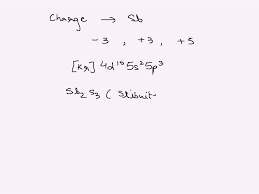 Charge → Sb
-3 , +3 , +5
[Kr] 4d¹⁰ 5s² 5p³
Sb₂S₃ ( Stibnit